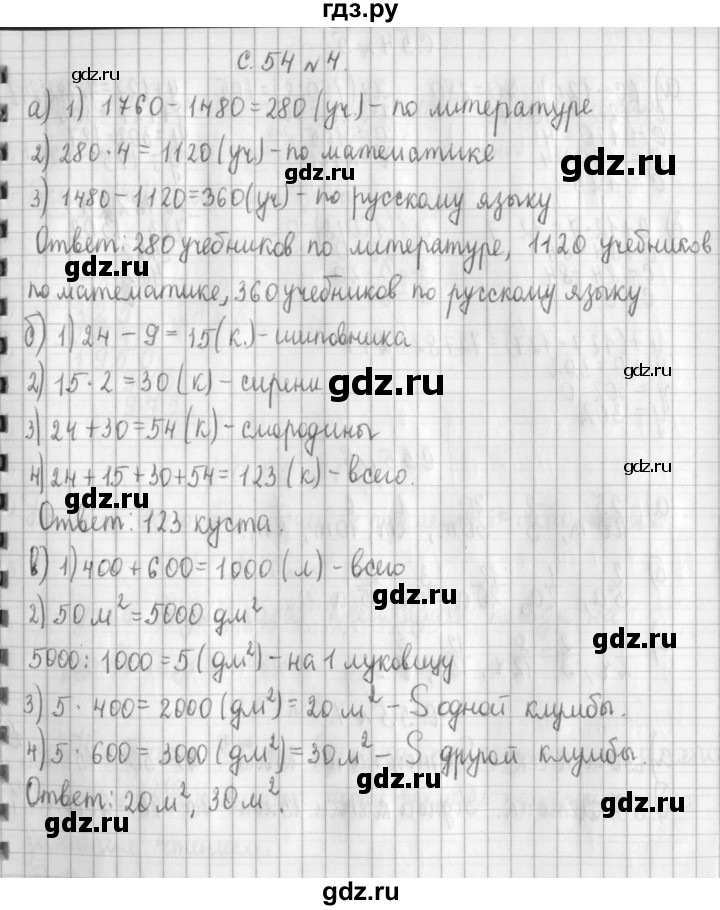 гдз.ру
с. 54 №4.
gdz.ru
а) 1) 1760-1480=280(уч)-по литературе
2) 280·4=1120(уч)-по математике
gdz.ru
gdz.ru
3) 1480-1120=360(уч)-по русскому языку
Ответ: 280 учебников по литературе, 1120 учебников
gdz.ru
по математике, 360 учебников по русскому языку
gdz.ru
б) 1) 24-9=15(к.)-шиповника
gdz.ru
2) 15·2=30(к)-сирени
gdz.ru
3) 24+30=54(к)-смородины
gdz.ru
4) 24+15+30+54=123(к)-всего.
gdz.ru
Ответ: 123 куста.
в) 1) 400+600=1000(л)-всего
gdz.ru
2) 50м²=5000 дм²
gdz.ru
5000:1000=5(дм²)-на 1 луковицу
3) 5·400=2000(дм²)=20м²-S одной клумбы.
4) 5·600=3000(дм²)=30м²-S другой клумбы.
Ответ: 20м², 30м²
gdz.ru
gdz.ru
gdz.ru